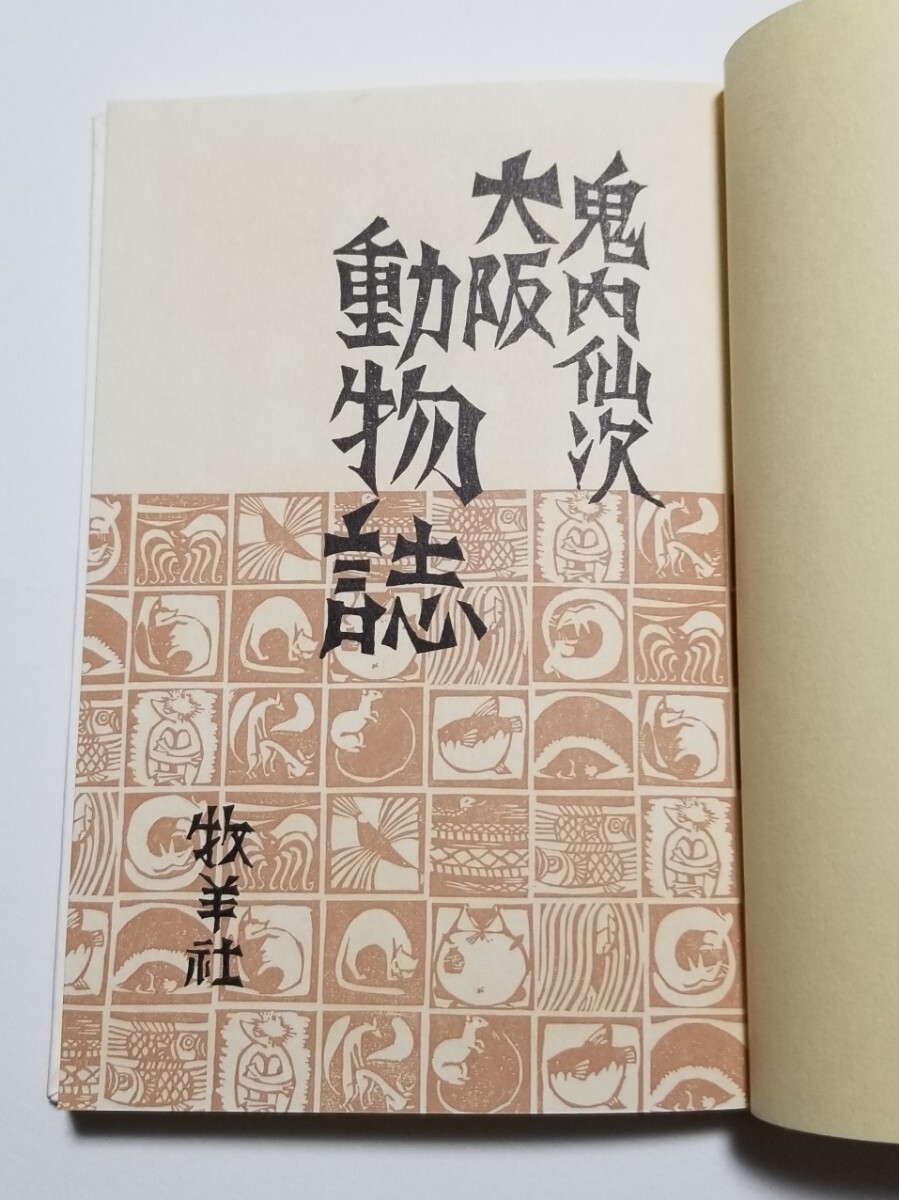 鬼内仙次
大阪
動物誌
牧羊社